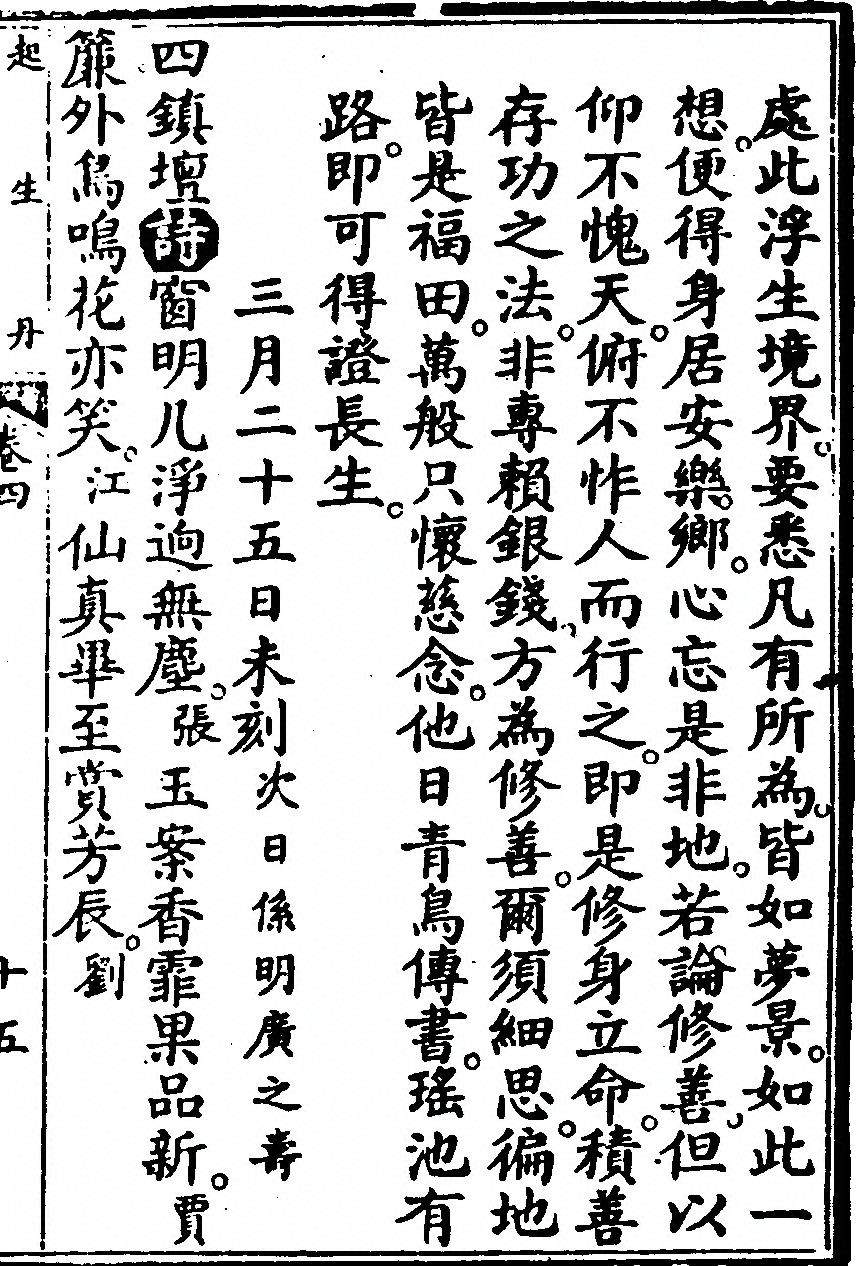 處此浮生境界要悉凡有所為皆如夢景。如此一
想。便得身居安樂鄉。心忘是非地。若論修善但以
仰不愧天。俯不怍人而行之。即是修身立命。積善
存功之法。非專賴銀錢方為修善。爾須細思。徧地
皆是福田。萬般只懷慈念。他日青鳥傳書。瑤池有
路。即可得證長生。
三月二十五日未刻次日係明廣之壽
四鎮壇詩窗明几淨逈無塵。張玉案香霏果品新。賈
簾外鳥鳴花亦笑。江仙真畢至賞芳辰。劉
起生丹 卷四 十五